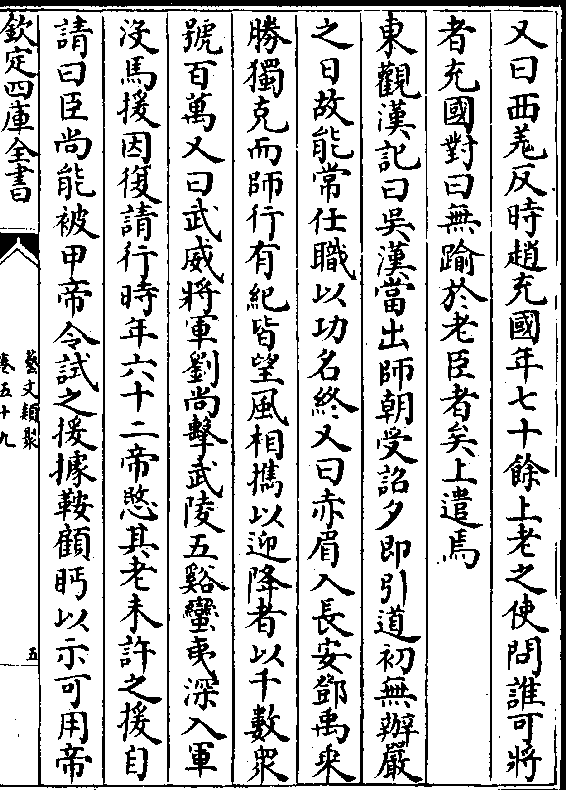 又曰西羌反時趙充國年七十餘上老之使問誰可將
者充國對曰無踰於老臣者矣上遣焉
東觀漢記曰吳漢當出師朝受詔夕即引道初無辦嚴
之日故能常仕職以功名終又曰赤眉入長安鄧禹乗
勝獨克而師行有紀皆望風相攜以迎降者以千數衆
號百萬又曰武威將軍劉尚擊武陵五谿蠻夷深入軍
沒馬援因復請行時年六十二帝愍其老未許之援自
請曰臣尚能被甲帝令試之援據鞍顧眄以示可用帝
欽定四庫全書
藝文類聚
卷五十九
五